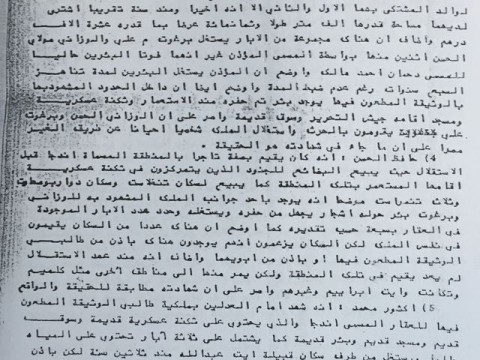 لوالد المشتكى بهما الاول والثاني الا انه اخيرا ومند سنة تقريبا اشترى
لديهما مساحة قدرها الف متر طولا وثمانمائة عرضا بما قدره عشرة الاف
درهم واضاف ان هناك مجموعة من الابار يستغل برغوت م علي والوزاني مولاي
الحسن اثنين منها بواسطة المسمى المؤذن غير انهما فوتا البئرين حاليا
للمسمى دحمان احمد مالك واوضح ان المؤذن يستغل البئرين لمدة تناهز
السبع سنوات رغم عدم ضبط المدة واوضح ايضا ان داخل الحدود المشهود بها
بالوثيقة المطعون فيها يوجد بئر تم حفره مند الاستعمار وثكنة عسكرية
ومسجد اقامه جيش التحرير وسوق قديمة واصر على ان الوزاني الحسن وبرغوت
علي يقومون بالحرث واستغلال الملك شخصيا احيانا عن طريق الغير
مصرا على ان ما جاء في شهادته هو الحقيقة .
4) حافظ الحسن : انه كان يقيم بصفة تاجرا بالمنطقة المسماة اندجا قبل
الاستقلال حيث يبيع البضائع للجنود الذين يتمركزون في ثكنة عسكرية
اقامها المستعمر بتلك المنطقة كما يبيع لسكان تنغلاست وسكان دوار بومعوت
وثلاث تنمراست موضحا انه يوجد باحد جوانب الملك المشهود به للوزاني
وبرغوت بئر حوله اشجار يجهل من حفره ويستغله وحدد عدد الابار الموجودة
في العقار بسبعة حسب تقديره كما اوضح ان هناك عددا من السكان يقيمون
في نفس الملك لكن المكان يزعمون انهم يوجدون هناك باذن من طالبي
الوثيقة المطعون فيها او باذن من ابويهما واضاف انه مند عهد الاستقلال
لم يعد يقيم في تلك المنطقة ولكن يمر منها الى مناطق اخرى مثل كلميم
وتكانت وايت ابراهيم وغيرهم واصر على ان شهادته مطابقة للحقيقة والواقع
5) اكشور محمد : انه شهد امام العدلين بملكية طالبي الوثيقة المطعون
فيها للعقار المسمى اندجا والذي يحتوي على ثكنة عسكرية قديمة وسوق
قديم ومسجد قديم وبئر قديمة كما يشتمل على ثلاثة آبار تحتوي على المياه
ويستغل من طرف سكان قبيلة ايت عبدالله مند ثلاثين سنة لكن باذن